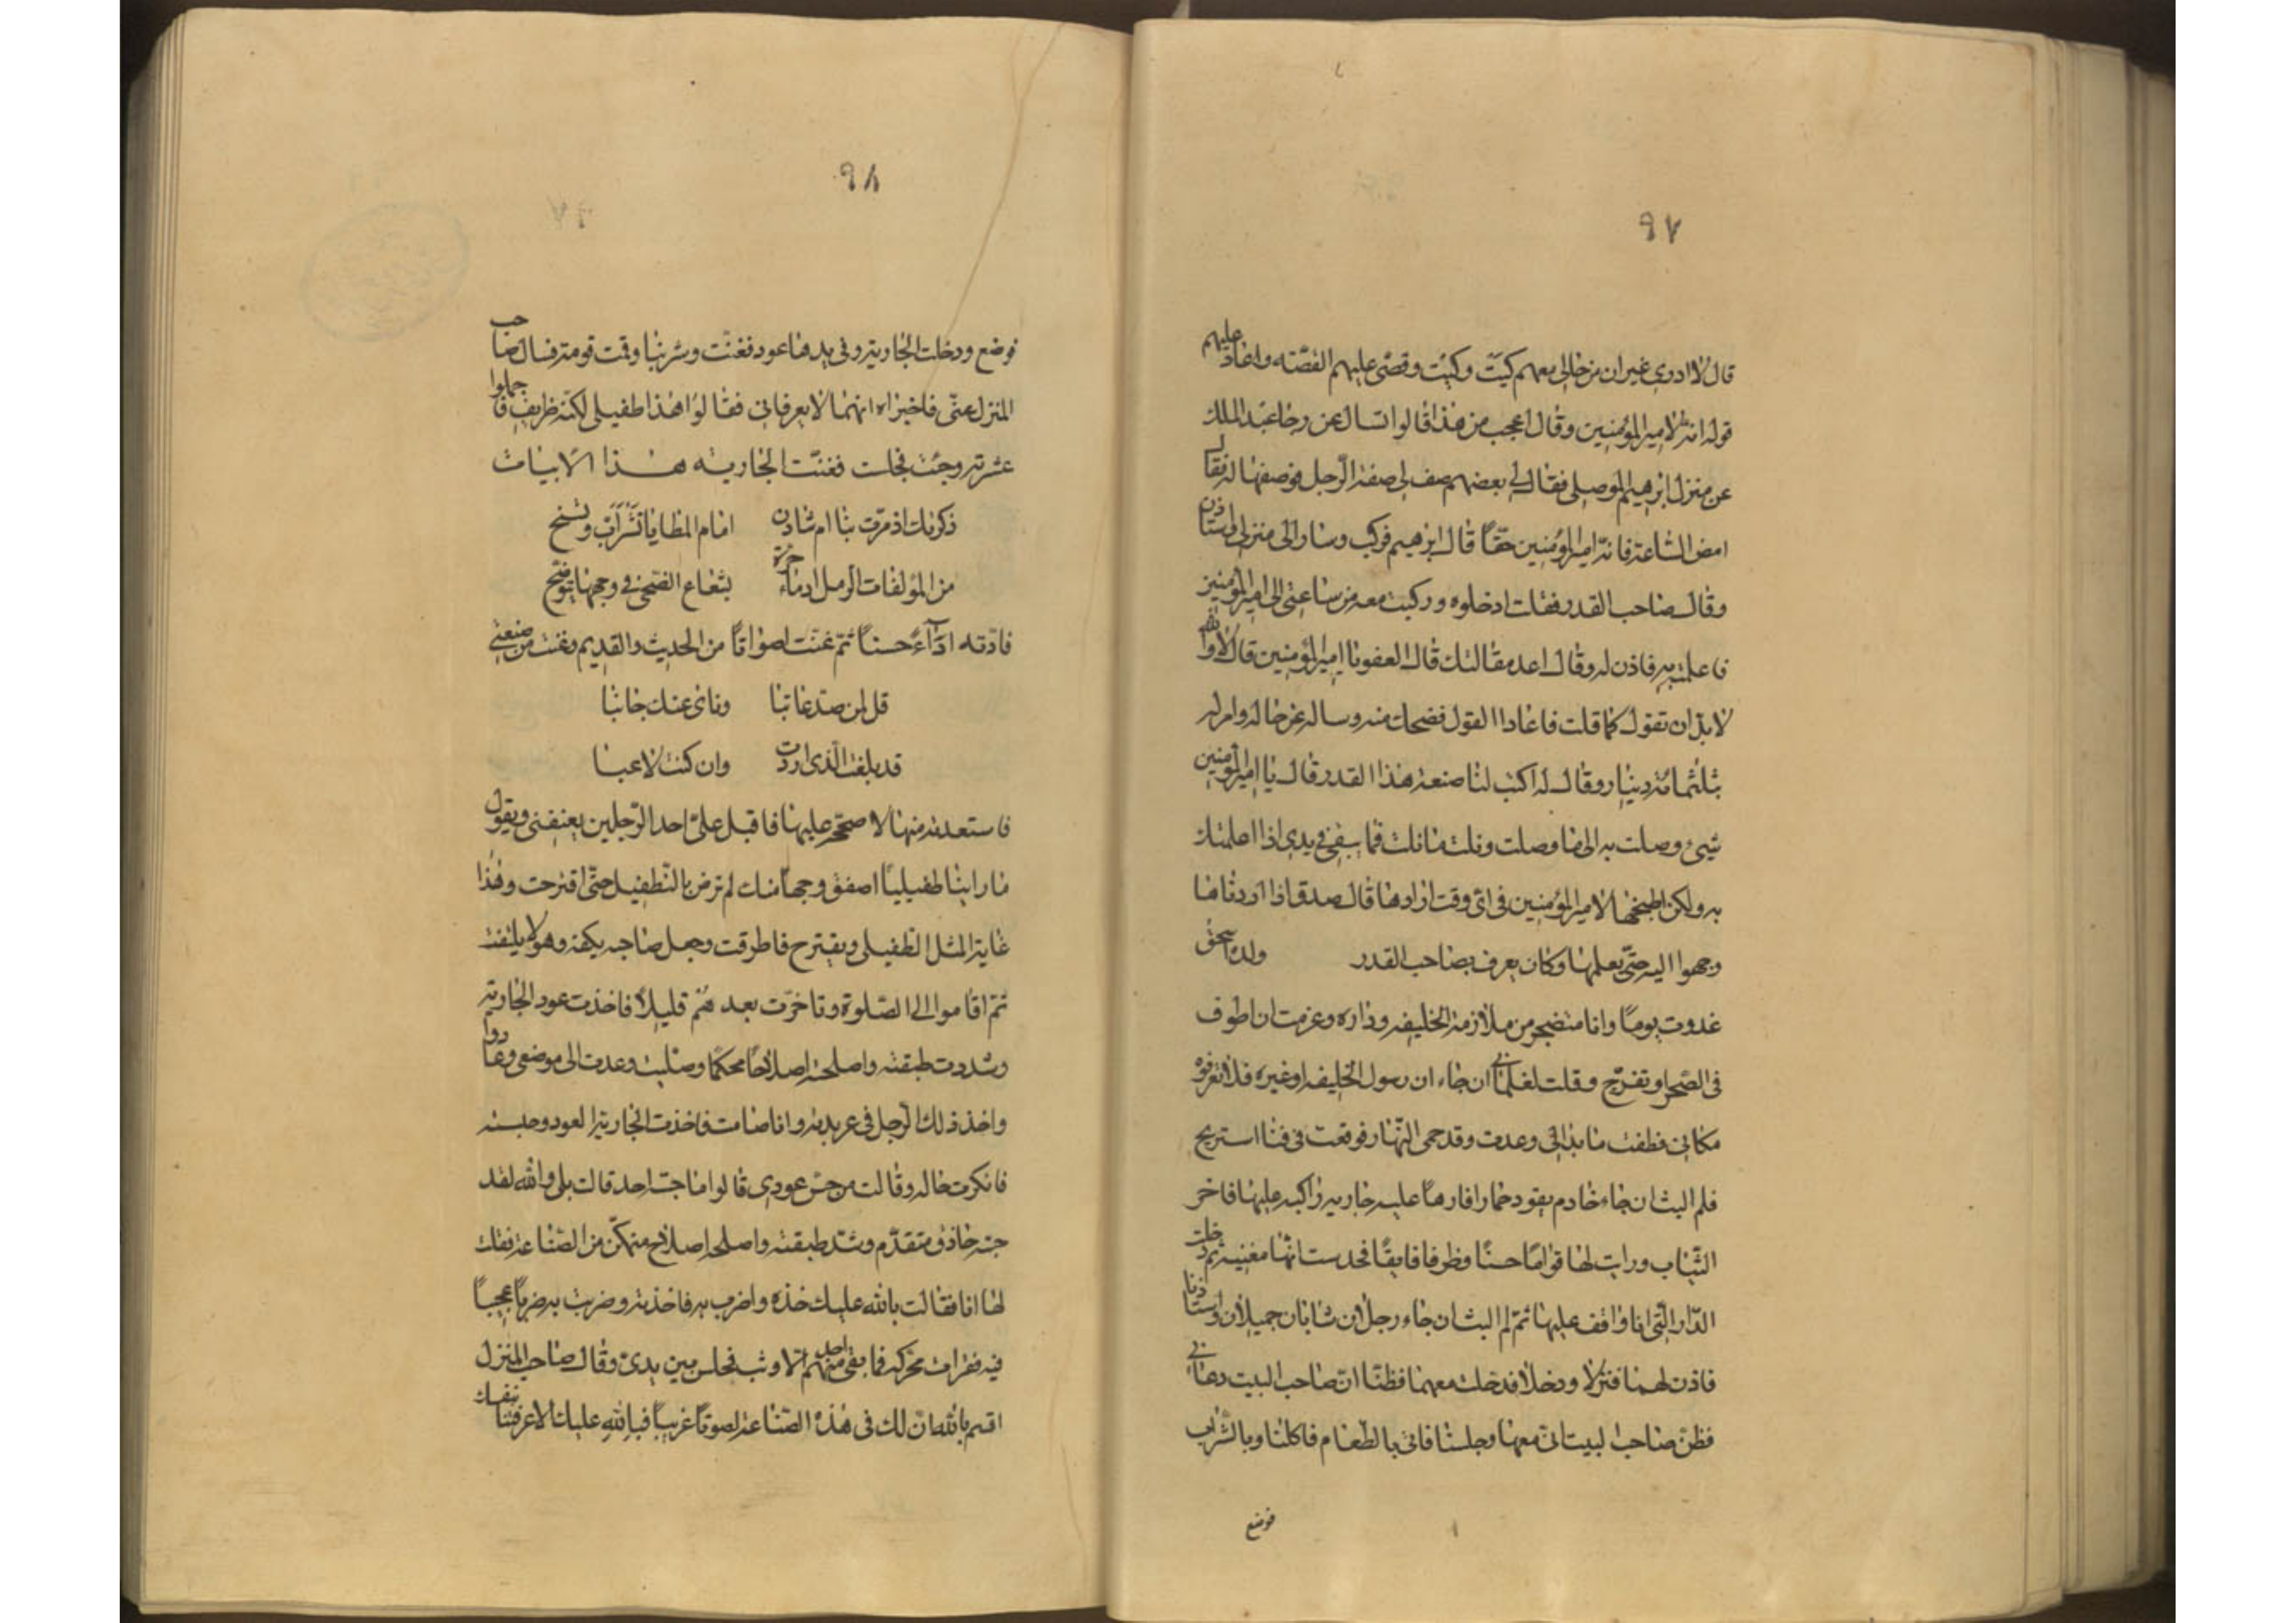 ٩٧
قال لا ادرى غير ان من حالى معهم كيت وكيت وقصّ عليهم القصّته واعاد عليهم
قوله انه لامير المؤمنين وقال اعجب من هذا قالوا تسال عن رجا عبد الملك
عن منزل ابرهيم الموصلى فقال لى بعضهم صف لى صفة الرّجل فوصفها له فقال
امض السّاعة فانه امير المؤمنين حقّاً قال ابرهيم فركب وسار الى منزلى واستاذن
وقال صاحب القدر فقلت ادخلوه وركبت معه من ساعتى الى امير المؤمنين
فاعلمته به فاذن له وقال اعد مقالتك قال العفو يا امير المؤمنين قال لا والله
لا بدّ ان تقول كما قلت فاعاد القول فضحك منه وساله عن حاله وامر له
بثلثمائة دينار وقال له اكتب لنا صنعة هذا القدر قال يا امير المؤمنين
شىء وصلت به الى ما وصلت ونلت ما نلت فما يبقى فى يدى اذا اعلمتك
به ولكن اطبخها لامير المؤمنين فى اى وقت ارادها قال صدق اذا اردناها
وجهوا اليه حتّى يعلمها وكان يعرف بصاحب القدر ولده اسحق
غدوت يوماً وانا متضجر من ملازمة الخليفه وداره وعزمت ان اطوف
فى الصّحرا وتفرّج وقلت لغلمانى ان جاء ان رسول الخليفه او غيره فلا تعرفوه
مكانى فطفت ما بدا لى وعدت وقد حمى النّهار فوقعت فى فنا استريح
فلم البث ان جاء خادم يقود حمارا فارهاً عليه جاريه راكبه عليها فاخر
الثّياب ورايت لها قواماً حسناً وظرفا فايقاً فحدست انّها مغنيه ثم دخلت
الدّار الّتى انا واقف عليها ثمّ لم البث ان جاء رجلان شابان جميلان واستاذنا
فاذن لهما فنزلا ودخلا فدخلت معهما فظنّا انّ صاحب البيت دعانى
فظنّ صاحب البيت انّى معهما وجلسنا فاتى بالطعام فاكلنا وبالشّراب
فوضع
٩٨
فوضع ودخلت الجارية وفى يدها عود فغنّت وشربنا وقمت قومة فسال صاحب
المنزل عنّى فاخبراه انهما لا يعرفانى فقالوا هذا طفيلى لكنّه ظريف فاجملوا
عشرته وجئت فجلست فغنّت الجاريه هذا الابيات
ذكرتك اذ مرّت بنا ام شادن امام المطايا تشرأبّ وتسنح
من المؤلفات الرمل ادماء حرّة شعاع الضّحى فى وجهها يتوضّح
فادّته اداءً حسناً ثمّ غنّت اصواتاً من الحديث والقديم وغنت من صنعتى
قل لمن صدّ عاتبا وناى عنك جانبا
قد بلغت الّذى اردت وان كنت لاعبا
فاستعدته منها لاصحّحه عليها فاقبل علىّ احد الرّجلين يعنفنى ويقول
ما راينا طفيلياً اصفق وجهاً منك لم ترض بالتّطفيل حتّى اقترحت وهذا
غاية المثل الطفيلى ويقترح فاطرقت وجعل صاحبه يكفه وهو لا يلتفت
ثم اقاموا الى الصّلوة وتاخّرت بعد هم قليلاً فاخذت عود الجارية
وشددت طبقته واصلحته اصلاحاً محكماً وصلّيت وعدت الى موضعى وعادوا
واخذ ذلك الرّجل فى عربدته وانا صامت فاخذت الجارية العود وجسته
فانكرت حاله وقالت من جسّ عودى قالوا ما جسّه احد قالت بلى والله لقد
جسّه حاذق متقدّم وشدّ طبقته واصلحه اصلاح متمكّن من الصّناعة فقلت
لها انا فقالت بالله عليك خذه واضرب به فاخذته وضربت به ضرباً عجيباً
فيه نقرات محرّكه فما بقى منهم احد الا وثب فجلس بين يدىّ وقال صاحب المنزل
اقسم بالله انّ لك فى هذه الصّناعة لصوتاً غريباً فبالله عليك الا عرفتنا بنفسك